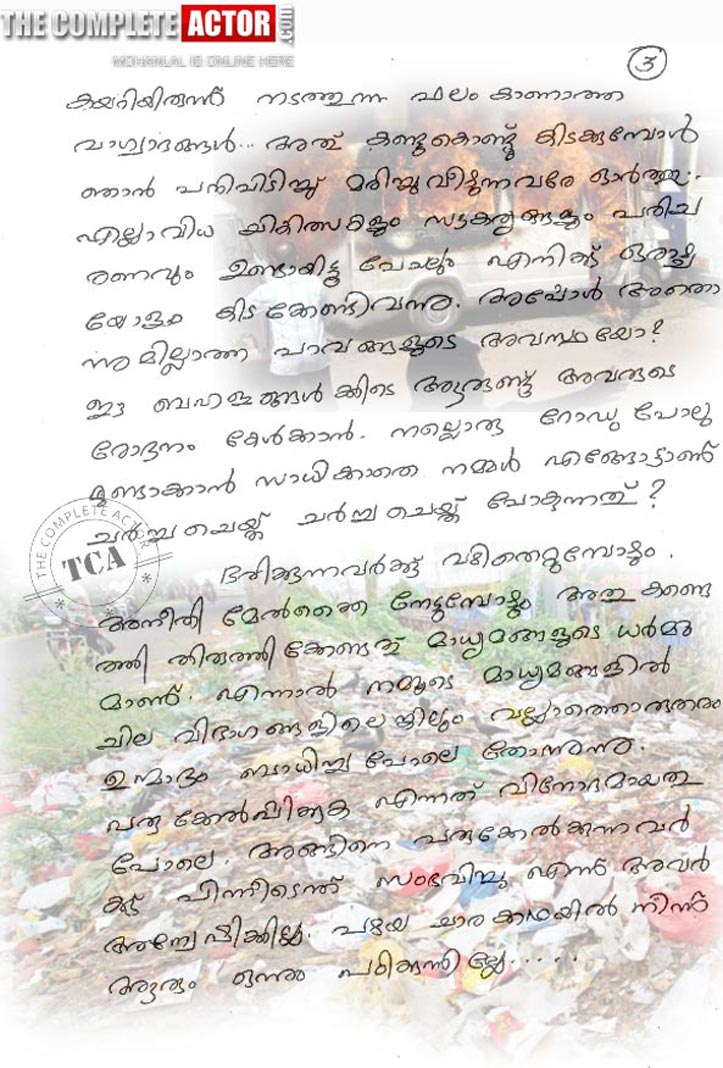 THE COMPLETE ACTOR.com
MOHANLAL IS ONLINE HERE
3
കയറിയിരുന്ന് നടത്തുന്ന ഫലം കാണാത്ത
വാഗ്വാദങ്ങൾ... അത് കണ്ടുകൊണ്ട് കിടക്കുമ്പോൾ
ഞാൻ പനിപിടിച്ച് മരിച്ചുവീഴുന്നവരേ ഓർത്തു.
എല്ലാവിധ ചികിത്സകളും സൗകര്യങ്ങളും പരിച
രണവും ഉണ്ടായിട്ടു പോലും എനിക്ക് ഒരാഴ്ച
യോളം കിടക്കേണ്ടിവന്നു. അപ്പോൾ അതൊ
ന്നുമില്ലാത്ത പാവങ്ങളുടെ അവസ്ഥയോ?
ഈ ബഹളങ്ങൾക്കിടെ ആരുണ്ട് അവരുടെ
രോദനം കേൾക്കാൻ. നല്ലൊരു റോഡു പോലു
മുണ്ടാക്കാൻ സാധിക്കാതെ നമ്മൾ എങ്ങോട്ടാണ്
ചർച്ച ചെയ്ത് ചർച്ച ചെയ്ത് പോകുന്നത്?
THE COMPLETE ACTOR
TCA
ഭരിക്കുന്നവർക്ക് വഴിതെറ്റുമ്പോഴും.
അനീതി മേൽക്കൈ നേടുമ്പോഴും അതു കണ്ടെ
ത്തി തിരുത്തിക്കേണ്ടത് മാധ്യമങ്ങളുടെ ധർമ്മ
മാണ്. എന്നാൽ നമ്മുടെ മാധ്യമങ്ങളിൽ
ചില വിഭാഗങ്ങളിലെങ്കിലും വല്ലാത്തൊരുതരം
ഉന്മാദം ബാധിച്ച പോലെ തോന്നുന്നു.
പരുക്കേൽപ്പിക്കുക എന്നത് വിനോദമായതു
പോലെ. അങ്ങിനെ പരുക്കേൽക്കുന്നവർ
ക്ക് പിന്നീടെന്ത് സംഭവിച്ചു എന്ന് അവർ
അന്വേഷിക്കില്ല. പഴയ ചാരക്കഥയിൽ നിന്ന്
ആരും ഒന്നും പഠിക്കുന്നില്ലേ.....